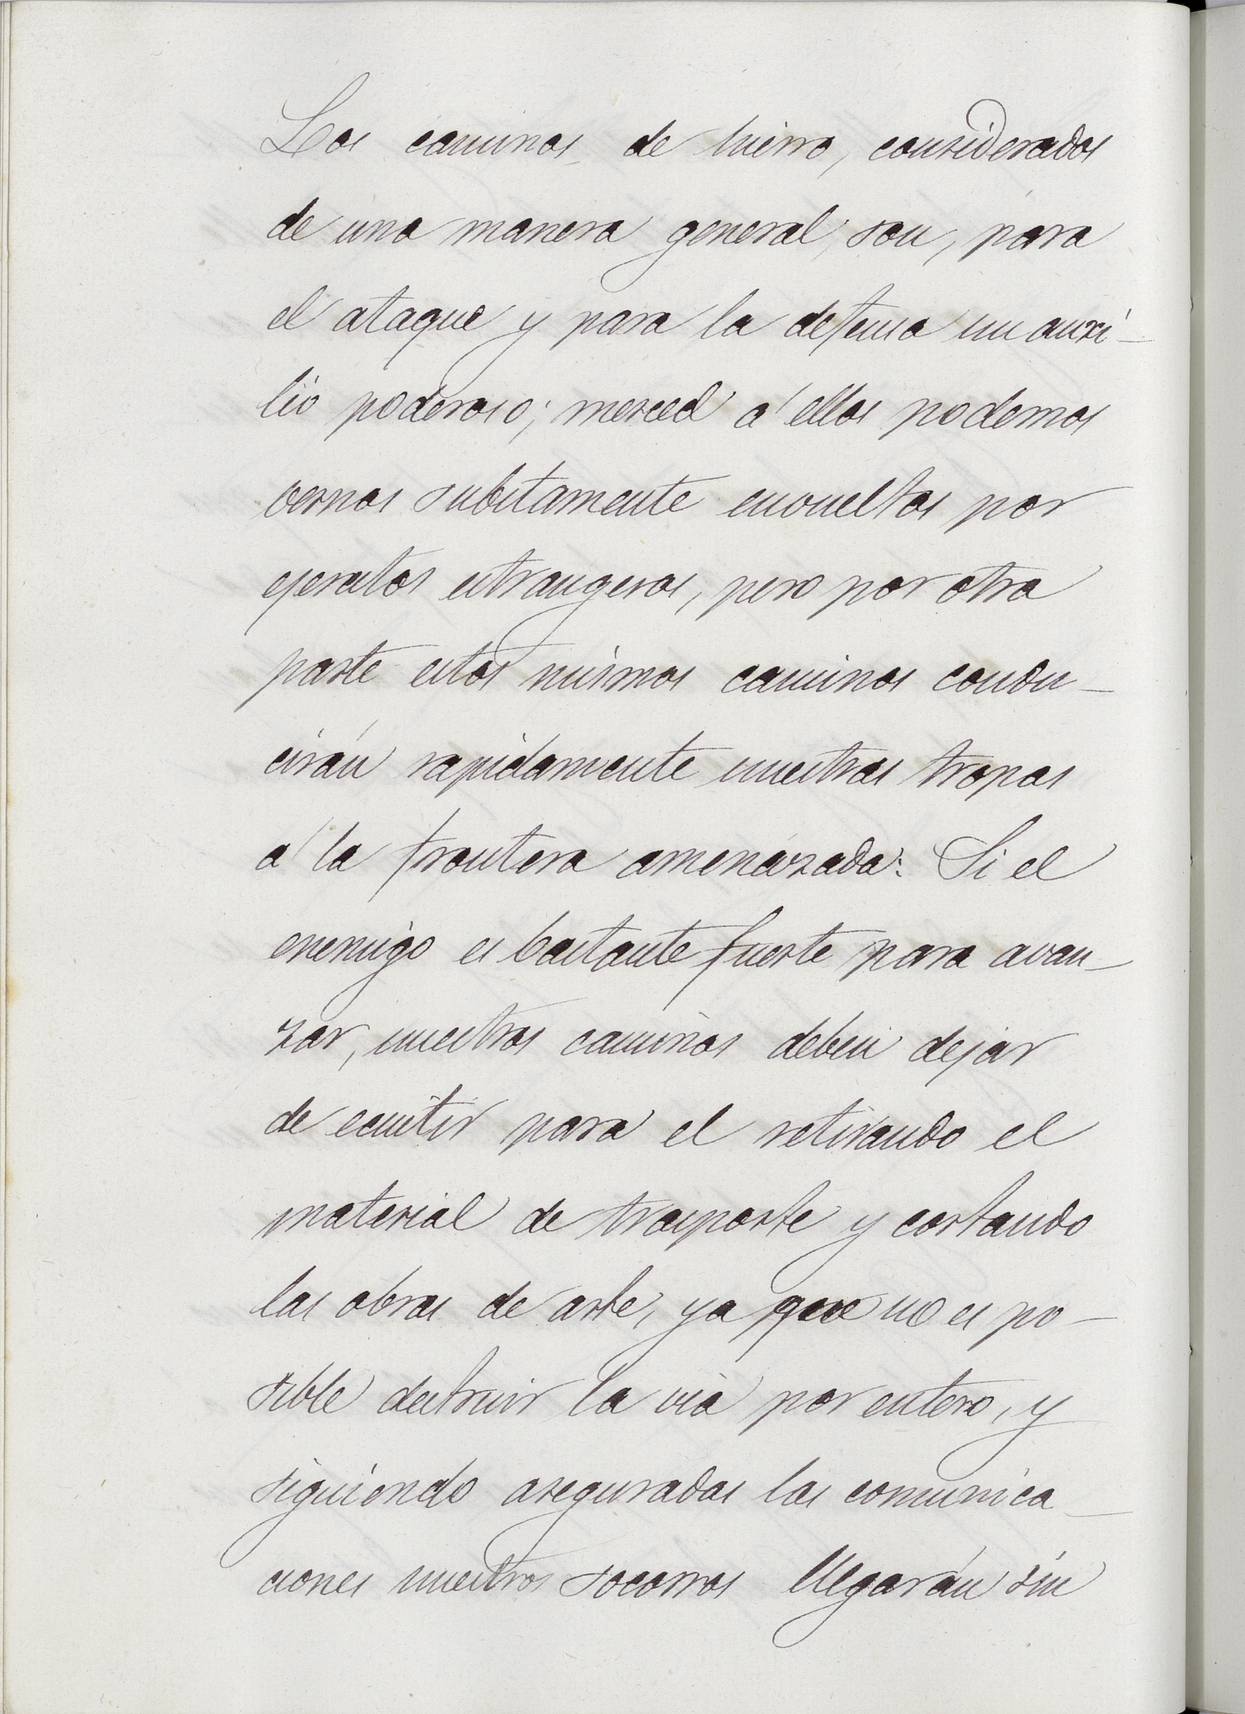 Los caminos de hierro, considerados
de una manera general, son, para
el ataque y para la defensa un auxi-
lio poderoso; merced á ellos podemos
vernos subitamente envueltos por
ejercitos estrangeros, pero por otra
parte estos mismos caminos condu-
cirán rapidamente nuestras tropas
á la frontera amenazada: Si el
enemigo es bastante fuerte para avan-
zar, nuestros caminos deben dejar
de ecsistir para el retirando el
material de trasporte y cortando
las obras de arte, ya que no es po-
sible destruir la via por entero, y
siguiendo aseguradas las comunica-
ciones nuestros socorros llegarán sin